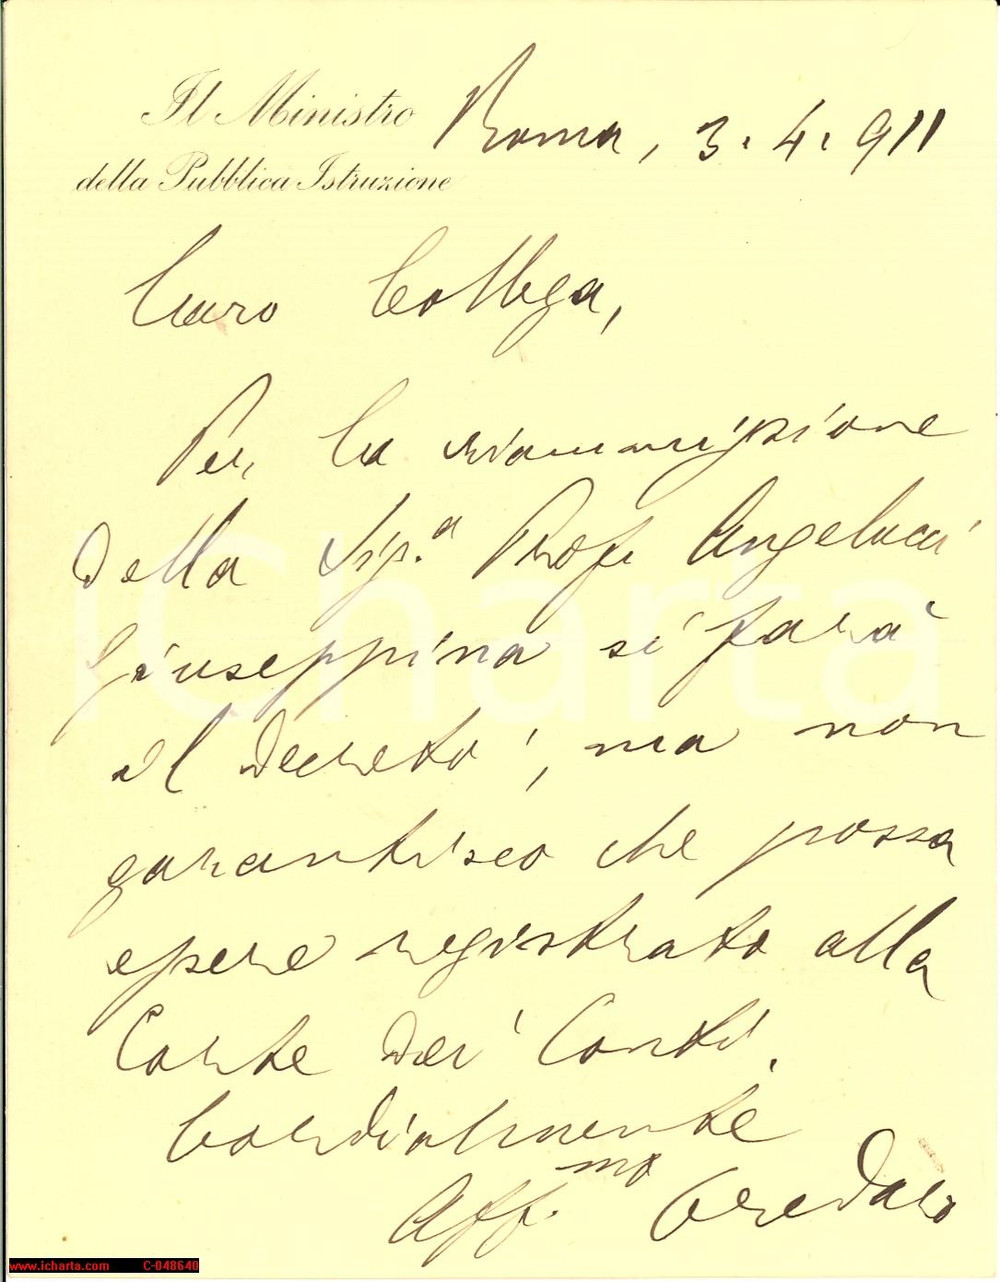 Il Ministro
della Pubblica Istruzione
Roma, 3. 4. 911
Caro Collega,
Per la riammissione
della Sig.a Prof. Angelucci
Giuseppina si farà
il decreto; ma non
garantisco che possa
essere registrato alla
Corte dei Conti.
Cordialmente
Aff.mo Credaro
iCharta
www.icharta.com C-048640